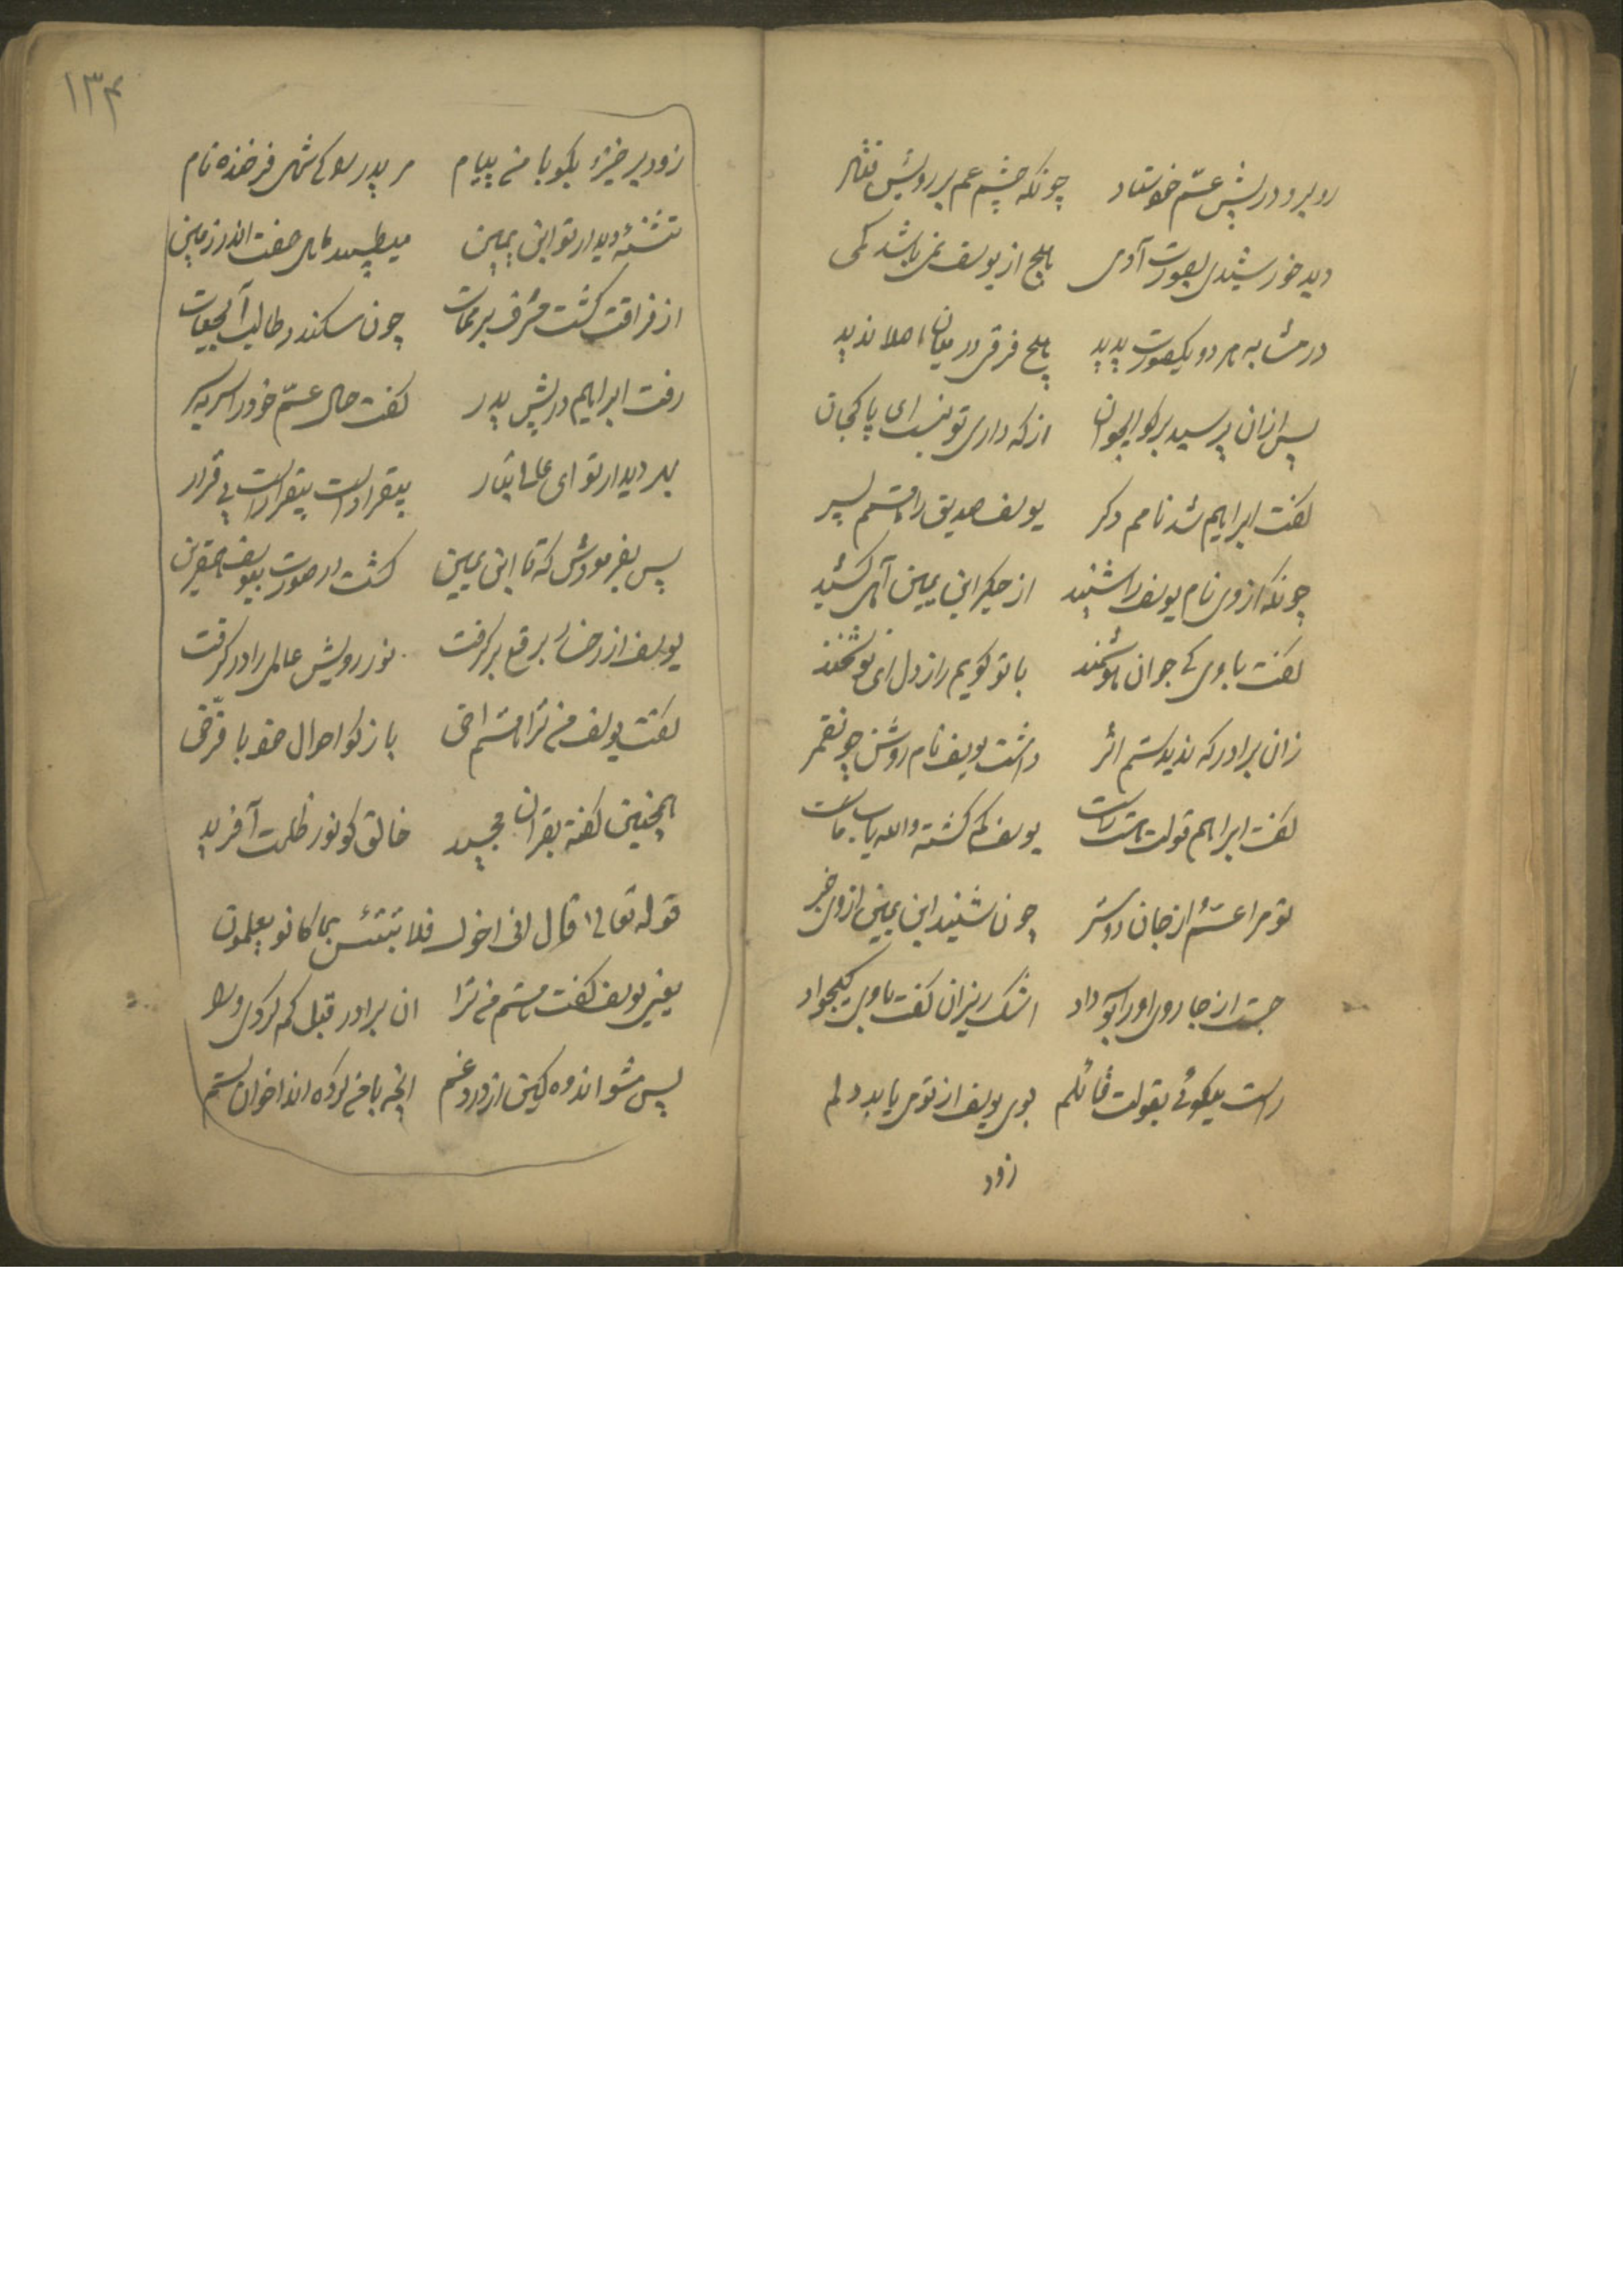 روبرو در پیش عمّ خود ستاد چونکه چشم عم بر رویش فتاد
دید خورشیدی بصورت آدمی هیچ از یوسف نمی باشد کمی
در مشابه هر دو یکصورت پدید هیچ فرقی در میان اصلا ندید
پس ازان پرسید برکو ایجوان از که داری تو نسب ای پاکجان
گفت ابراهیم شد نامم دکر یوسف صدیق را هستم پسر
چونکه از وی نام یوسف را شنید از جکر ابن یمین آهی کشید
گفت با وی کی جوان هوشمند با تو کویم راز دل ای نوشخند
زان برادر که ندیدستم اثر داشت یوسف نام روشن چونقمر
گفت ابراهیم قولت هست راست یوسف کم کشته والله باب ماست
تو مرا عمّی از جان دوستر چون شنید ابن یمین از وی خبر
جست از جا روی او را بوسه داد اشک ریزان گفت با وی کیجواد
راست میکوئی بقولت قائلم بوی یوسف از تو می یابد دلم
زود
۱۳۴
زود برخیز و بکو با من پیام مر پدر را کی شه فرخنده نام
تشنهٔ دیدار تو ابن یمین میطپد ماهی صفت اندر زمین
از فراقت کشت مشرف بر ممات چون سکندر طالب آبحیات
رفت ابراهیم در پیش پدر گفت حال عمّ خود را سر بسر
بهر دیدار تو ای عالی تبار بیقرار است بیقرار است بی قرار
پس بفرمودش که تا ابن یمین کشت در صورت بیوسف همقرین
یوسف از رخسار برقع بر کرفت نور رویش عالمی را در کرفت
گفت یوسف من ترا هستم اخی باز کو احوال خود با فرّخی
همچنین گفته بقران مجید خالق کو نور ظلمت آفرید
قوله تعالی قال انی اخوک فلا تبتئس بما کانو یعلمون
یعنی یوسف گفت هستم من ترا ان برادر قبل کم کردی ورا
پس مشو اندوه کین از درد و غم انچه با من کرده اند اخوان ستم